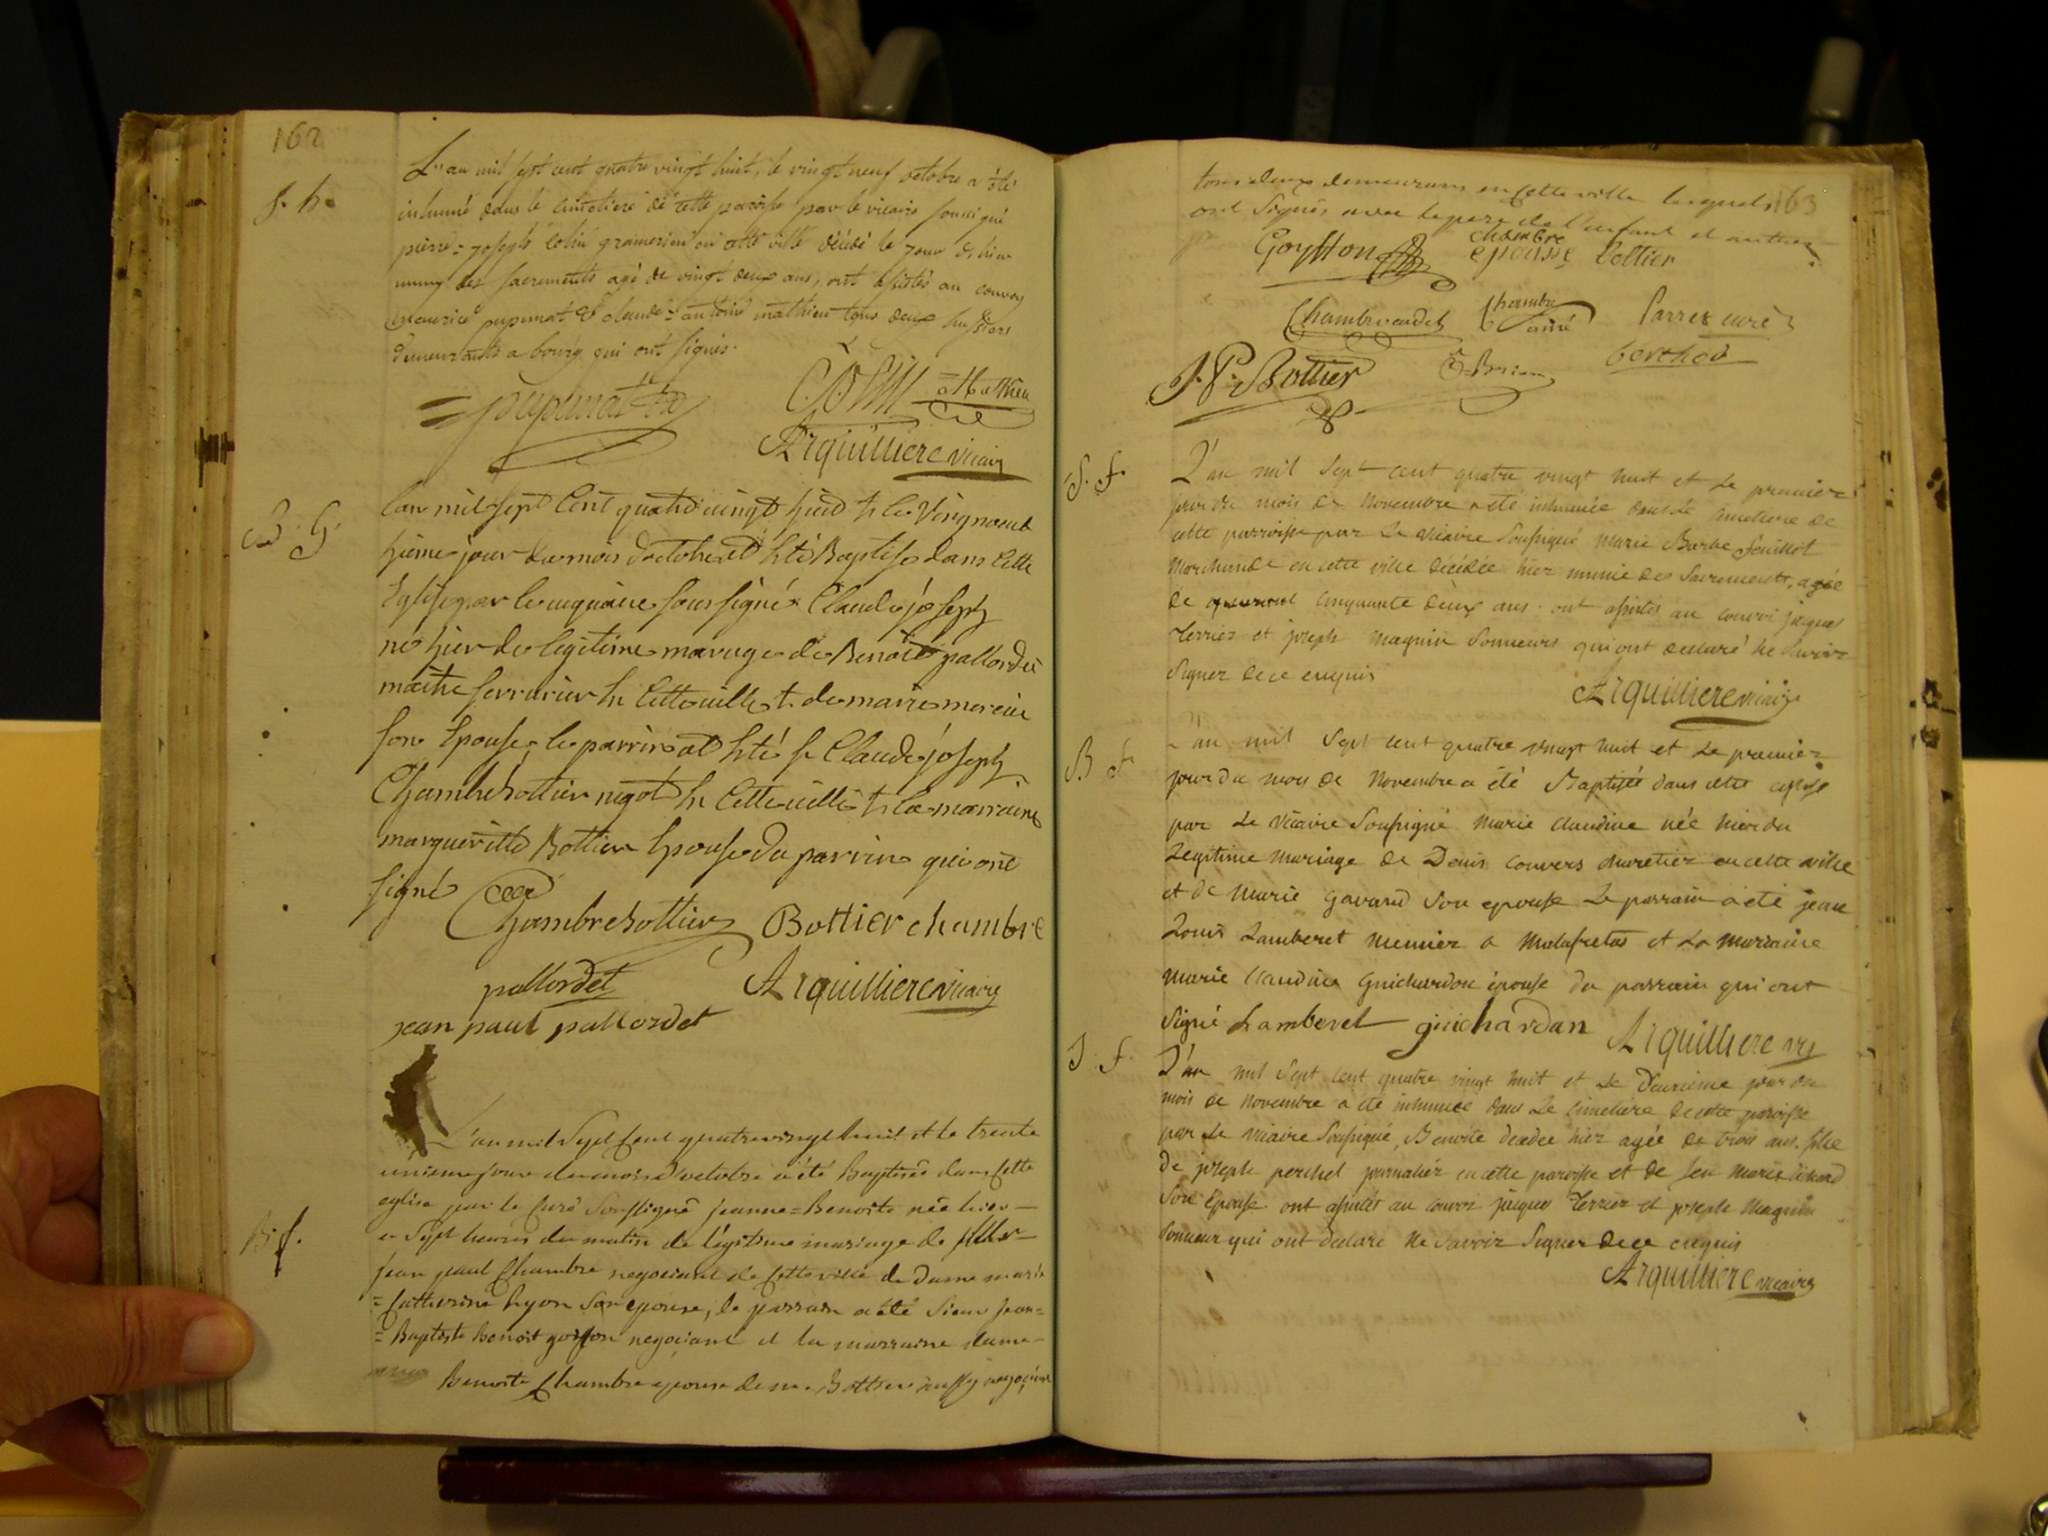 162
S. h.
L'an mil sept cent quatre vingt huit, le vingt neuf octobre a été
inhumé dans le cimetiere de cette paroisse par le vicaire soussigné
pierre = joseph Colin en cette ville décédé le jour d'hier
muny des sacrements agé de vingt deux ans, ont assistés au convoy
maurice pupunat & claude = antoine mathieu tous deux huissiers
demeurants a bourg qui ont signés.
pupunat
Colin
Mathieu
Arquilliere vicaire
B. G.
lan mil sept cent quatre vingt huit & le vingneuf
hieme jour du mois doctobre at hté Baptise dans cette
Eglise par le viquaire sous signé Claude joseph
né hier de legitime mariage de Benoit pallordet
maitre serrurier hi cette ville & de marie
son Epouse le parrin at hté sr Claude joseph
Chambre bottier negot hi cette ville & la marraine
margueritte Bottier Epouse du parrin qui ont
signé
Chambre bottier Bottier chambre
pallordet Arquilliere vicaire
jean paul pallordet
L'an mil sept cent quatrevingt huit et le trente
unieme jour du mois d'octobre a été baptisée dans cette
B. f.
eglise par le curé soussigné jeanne = Benoite née hier
a sept heures du matin de légitime mariage de
jean paul Chambre negociant de cette ville & dame marie
= Catherine hyon son epouse, le parrain a été sieur jean =
= Baptiste benoit goiffon negociant et la marraine dame
Benoite Chambre epouse de mr Bottier aussy negociant
163
tous deux demeurans en cette ville lesquels
ont signés avec le pere de l'enfant et autres
Goyffon chambre epousse bottier
Chambreaudet Chambre ainé Parrex curé
J. P. Bottier Brion berthod
S. f.
L'an mil sept cent quatre vingt huit et le premier
jour du mois de novembre a été inhumée dans le cimetiere de
cette parroisse par le vicaire soussigné marie Barbe feuillot
marchande en cette ville décédée hier munie des sacrements, agée
de cinquante deux ans. ont assistés au convoi jacques
terrier et joseph magnin sonneurs qui ont declaré ne savoir
signer de ce enquis
Arquilliere vicaire
B f.
L'an mil sept cent quatre vingt huit et le premier
jour du mois de novembre a été Baptisée dans cette eglise
par le vicaire soussigné marie claudine née hier du
legitime mariage de Denis convers charetier en cette ville
et de marie gavand son epouse le parrain a été jean
Louis Lamberet meunier a malafretas et la marraine
marie claudine guichardon épouse du parrain qui ont
signé Lamberet guichardan Arquilliere vic
S. f.
L'an mil sept cent quatre vingt huit et le deuxieme jour du
mois de novembre a été inhumée dans le cimetiere de cette paroisse
par le vicaire soussigné, Benoite decedée hier agée de trois ans. fille
de joseph perchet journalier en cette paroisse et de feu marie
son épouse ont assistés au convoi jacques terrier et joseph magnin
sonneur qui ont declaré ne savoir signer de ce enquis
Arquilliere vicaire